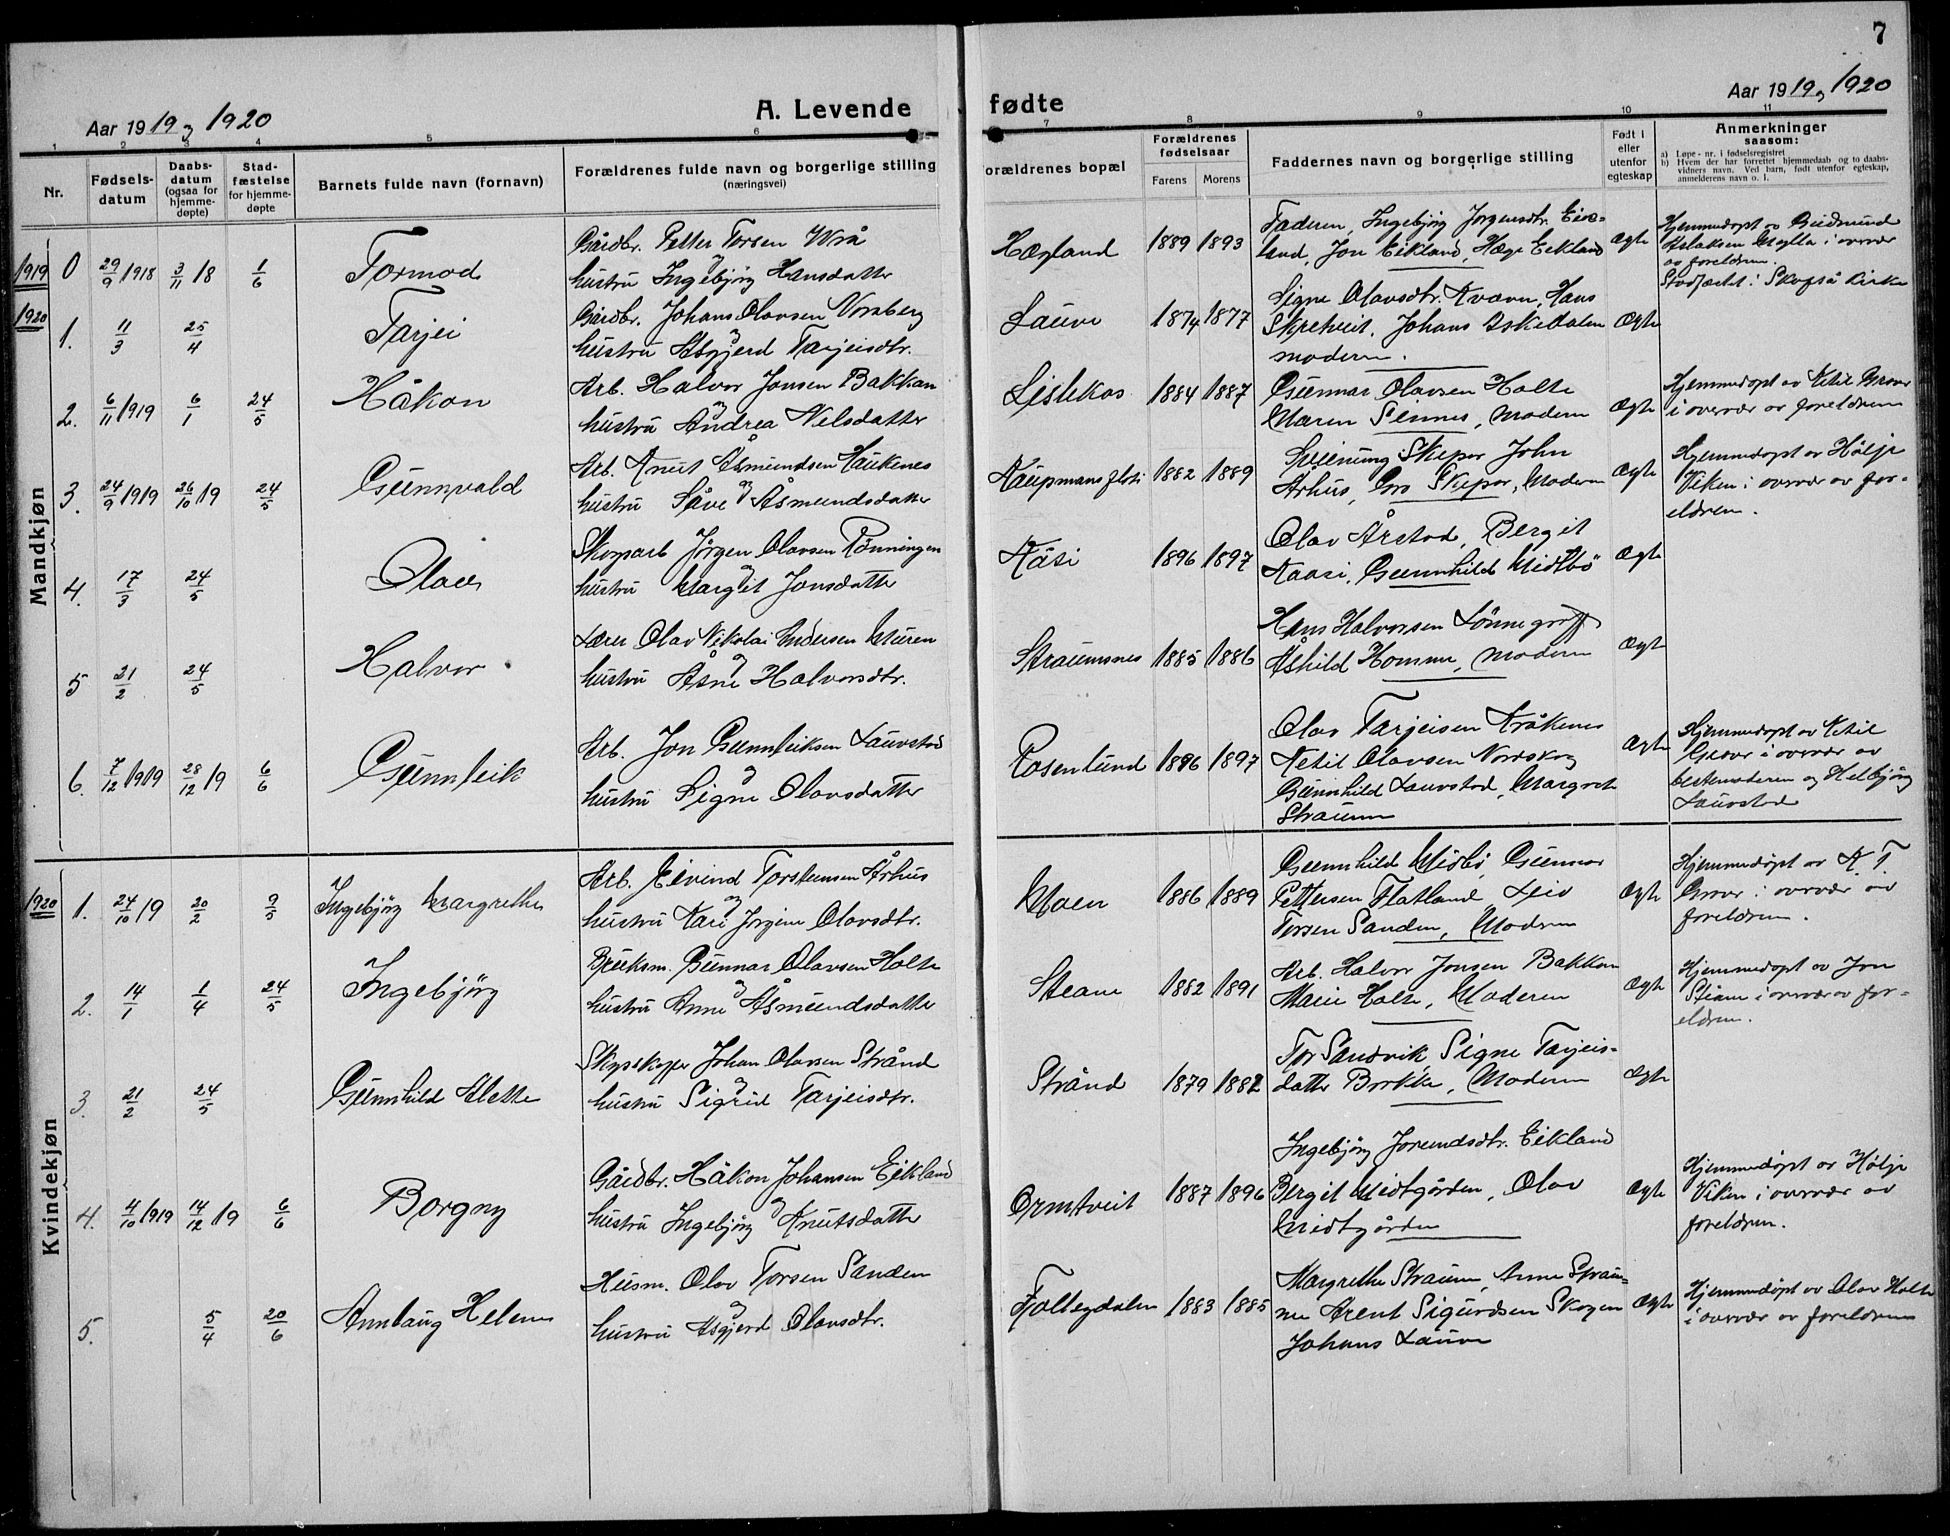 7
Aar 1919 og 1920
A. Levende fødte
Aar 1919 og 1920
1 2 3 4 5 6 7 8 9 10 11
Nr.
Fødsels-
datum
Daabs-
datum
(ogsaa for
hjemme-
døpte)
Stad-
fæstelse
for hjemme-
døpte
Barnets fulde navn (fornavn)
Forældrenes fulde navn og borgerlige stilling
(næringsvei)
orældrenes bopæl
Forældrenes
fødselsaar
Farens Morens
Faddernes navn og borgerlige stilling
Født i
eller
utenfor
egteskap
Anmerkninger
saasom:
a) Løpe-nr. i fødselsregistret
b) Hvem der har forrettet hjemmedaab og to daabs-
vidners navn. Ved barn, født utenfor egteskap,
anmelderens navn o. l.
Mandkjøn
1919 0 29/9 1918 3/11 18 1/6 Tormod
Gårdbr. Petter Torsen Wrå
og
hustru Ingebjørg Hansdatter
Hægland 1889 1893
Faderen, Ingebjørg Jørgensdtr. Eik-
land, Jon Eikland, Hæge Eikland
Ægte
Hjemmedøpt av Gudmund
Aslaksen Moglia i overvær
av foreldrene.
Stadfæstet i Skafså kirke
1920 1. 11/3 25/4 Tarjei
Gårdbr. Johans Olavsen Vorsberg
og
hustru Asgjerd Tarjeisdtr.
Lauve 1874 1877
Signe Olavsdtr. Kvævn, Hans
Skretveit, Johans Askedalen
moderen.
Ægte
2. 6/11 1919 6/1 24/5 Håkon
Arb. Halvor Jonsen Bakkan
og
hustru Andrea Nelsdatter
Lislekås 1884 1887
Gunnar Olavsen Holte
Maren Sinnes, Moderen
Ægte
Hjemmedøpt av Ketil Grover
i overvær av foreldrene
3. 24/9 1919 26/10 19 24/5 Gunnvald
Arb. Knut Åsmundsen Haukenes
og
hustru Såve Åsmundsdatter
Kaupmansfloti 1882 1889
Sveinung Skepar John
Århus, Gro Skepar, Moderen
Ægte
Hjemmedøpt av Hølje
Viken i overvær av for-
eldren.
4. 17/3 24/5 Olav
Skogsarb Jørgen Olavsen Rønningen
og
hustru Margit Jonsdatter
Kåsi 1896 1897
Olav Årstad, Bergit
Kaasi, Gunnhild Midtbø
Ægte
5 21/2 24/5 Halvor
Lærer Olav Nikolai Andersen Muren
og
hustru Åsne Halvorsdtr.
Straumsnes 1885 1886
Hans Halvorsen Lønnegraff
Åshild Homme, Moderen
Ægte
6. 7/12 1919 28/12 19 6/6 Gunnleik
Arb. Jon Gunnleiksen Lauvstad
og
hustru Signe Olavsdatter
Rosenlund 1896 1897
Olav Tarjeisen Kråkenes
Ketil Olavsen Nordskog
Gunnhild Lauvstad, Margret
Straum
Ægte
Hjemmedøpt av Ketil
Grover i overvær av
bestemoderen og Helbjørg
Lauvstad
Kvindekjøn
1920 1. 24/10 19 20/2 9/5 Ingebjørg Margrethe
Arb. Eivind Torsteinsen Århus
og
hustru Kari Jørgine Olavsdtr.
Moen 1886 1889
Gunnhild Midbø, Gunnar
Pettersen Flatland, Leiv
Torsen Sanden, Moderen
Ægte
Hjemmedøpt av K. T.
Grover i overvær av
foreldrene.
2. 14/1 1/4 24/5 Ingebjørg
Bruksm. Gunnar Olavsen Holte
og
hustru Anne Åsmundsdatter
Steane 1882 1891
Arb. Halvor Jonsen Bakkan
Marie Holte, Moderen
Ægte
Hjemmedøpt av Jon
Steane i overvær av for-
eldrene.
3. 21/2 24/5 Gunnhild Alette
Skysskaffer Johan Olavsen Strånd
og
hustru Sigrid Tarjeisdtr.
Strånd 1879 1882
Tor Sandvik Signe Tarjeis-
datter Brokke, Moderen
Ægte
4. 4/10 1919 14/12 19 6/6 Borgny
Gårdbr. Håkon Johansen Eikland
og
hustru Ingebjørg Knutsdatter
Ormtveit 1887 1896
Ingebjørg Jorundsdtr. Eikland
Bergit Midtgården, Olav
Midtgården
Ægte
Hjemmedøpt av Hølje
Viken i overvær av
foreldrene.
5. 5/4 20/6 Annlaug Helene
Husm. Olav Torsen Sanden
og
hustru Asgjerd Olavsdtr.
1883 1885
Margrethe Straum, Anne Strau-
me Arent Sigurdsen Skogen
Johans Lauve
Ægte
Hjemmedøpt av Olav Holte
i overvær av foreldrene